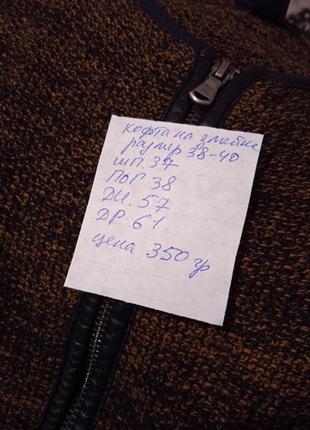 кофта на змейке
размер 38-40
шп. 37
ПОГ 38
ДИ. 57
ДР. 61
цена 350 гр